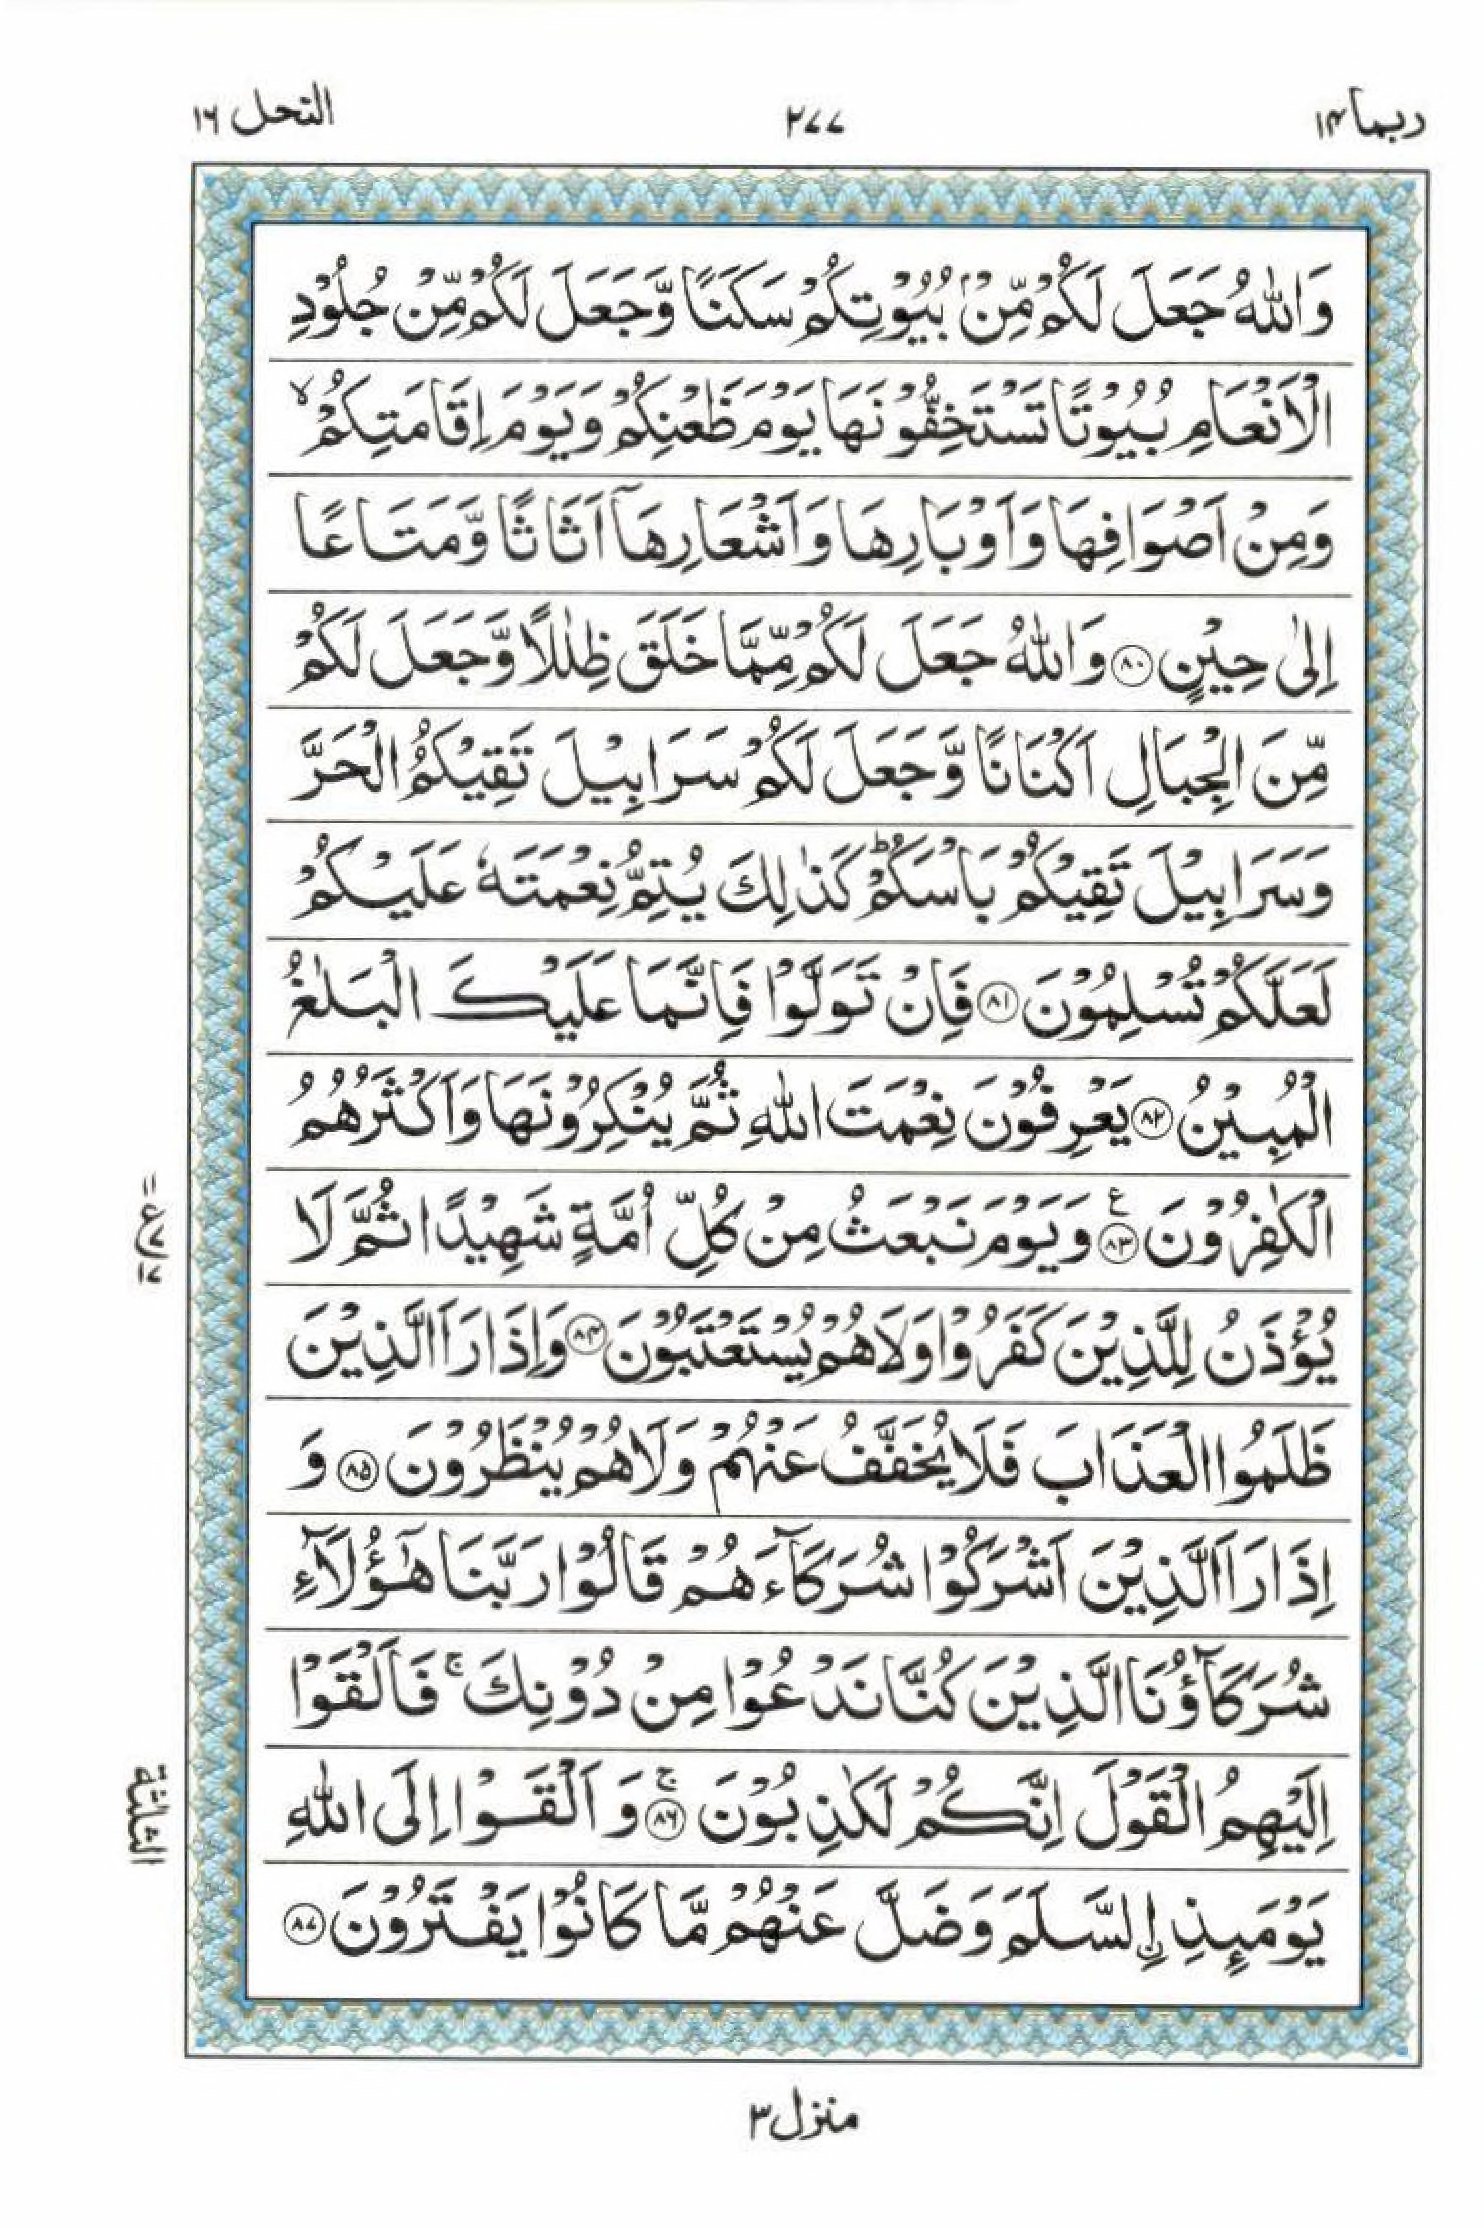 ربما ١٤
٢٧٧
النحل ١٦
وَاللّٰهُ جَعَلَ لَكُمْ مِّنْۢ بُيُوْتِكُمْ سَكَنًا وَّجَعَلَ لَكُمْ مِّنْ جُلُوْدِ
الْاَنْعَامِ بُيُوْتًا تَسْتَخِفُّوْنَهَا يَوْمَ ظَعْنِكُمْ وَيَوْمَ اِقَامَتِكُمْ ۙ
وَمِنْ اَصْوَافِهَا وَاَوْبَارِهَا وَاَشْعَارِهَاۤ اَثَاثًا وَّمَتَاعًا
اِلٰى حِيْنٍ ﴿٨٠﴾ وَاللّٰهُ جَعَلَ لَكُمْ مِّمَّا خَلَقَ ظِلٰلًا وَّجَعَلَ لَكُمْ
مِّنَ الْجِبَالِ اَكْنَانًا وَّجَعَلَ لَكُمْ سَرَابِيْلَ تَقِيْكُمُ الْحَرَّ
وَسَرَابِيْلَ تَقِيْكُمْ بَاْسَكُمْ ؕ كَذٰلِكَ يُتِمُّ نِعْمَتَهٗ عَلَيْكُمْ
لَعَلَّكُمْ تُسْلِمُوْنَ ﴿٨١﴾ فَاِنْ تَوَلَّوْا فَاِنَّمَا عَلَيْكَ الْبَلٰغُ
الْمُبِيْنُ ﴿٨٢﴾ يَعْرِفُوْنَ نِعْمَتَ اللّٰهِ ثُمَّ يُنْكِرُوْنَهَا وَاَكْثَرُهُمُ
الْكٰفِرُوْنَ ﴿٨٣﴾ ع وَيَوْمَ نَبْعَثُ مِنْ كُلِّ اُمَّةٍ شَهِيْدًا ثُمَّ لَا
يُؤْذَنُ لِلَّذِيْنَ كَفَرُوْا وَلَا هُمْ يُسْتَعْتَبُوْنَ ﴿٨٤﴾ وَاِذَا رَاَ الَّذِيْنَ
ظَلَمُوا الْعَذَابَ فَلَا يُخَفَّفُ عَنْهُمْ وَلَا هُمْ يُنْظَرُوْنَ ﴿٨٥﴾ وَ
اِذَا رَاَ الَّذِيْنَ اَشْرَكُوْا شُرَكَآءَهُمْ قَالُوْا رَبَّنَا هٰۤؤُلَآءِ
شُرَكَآؤُنَا الَّذِيْنَ كُنَّا نَدْعُوْا مِنْ دُوْنِكَ ۚ فَاَلْقَوْا
اِلَيْهِمُ الْقَوْلَ اِنَّكُمْ لَكٰذِبُوْنَ ﴿٨٦﴾ ۚ وَاَلْقَوْا اِلَى اللّٰهِ
يَوْمَىِٕذِ اِ۟لسَّلَمَ وَضَلَّ عَنْهُمْ مَّا كَانُوْا يَفْتَرُوْنَ ﴿٨٧﴾
الثلثة
منزل ٣